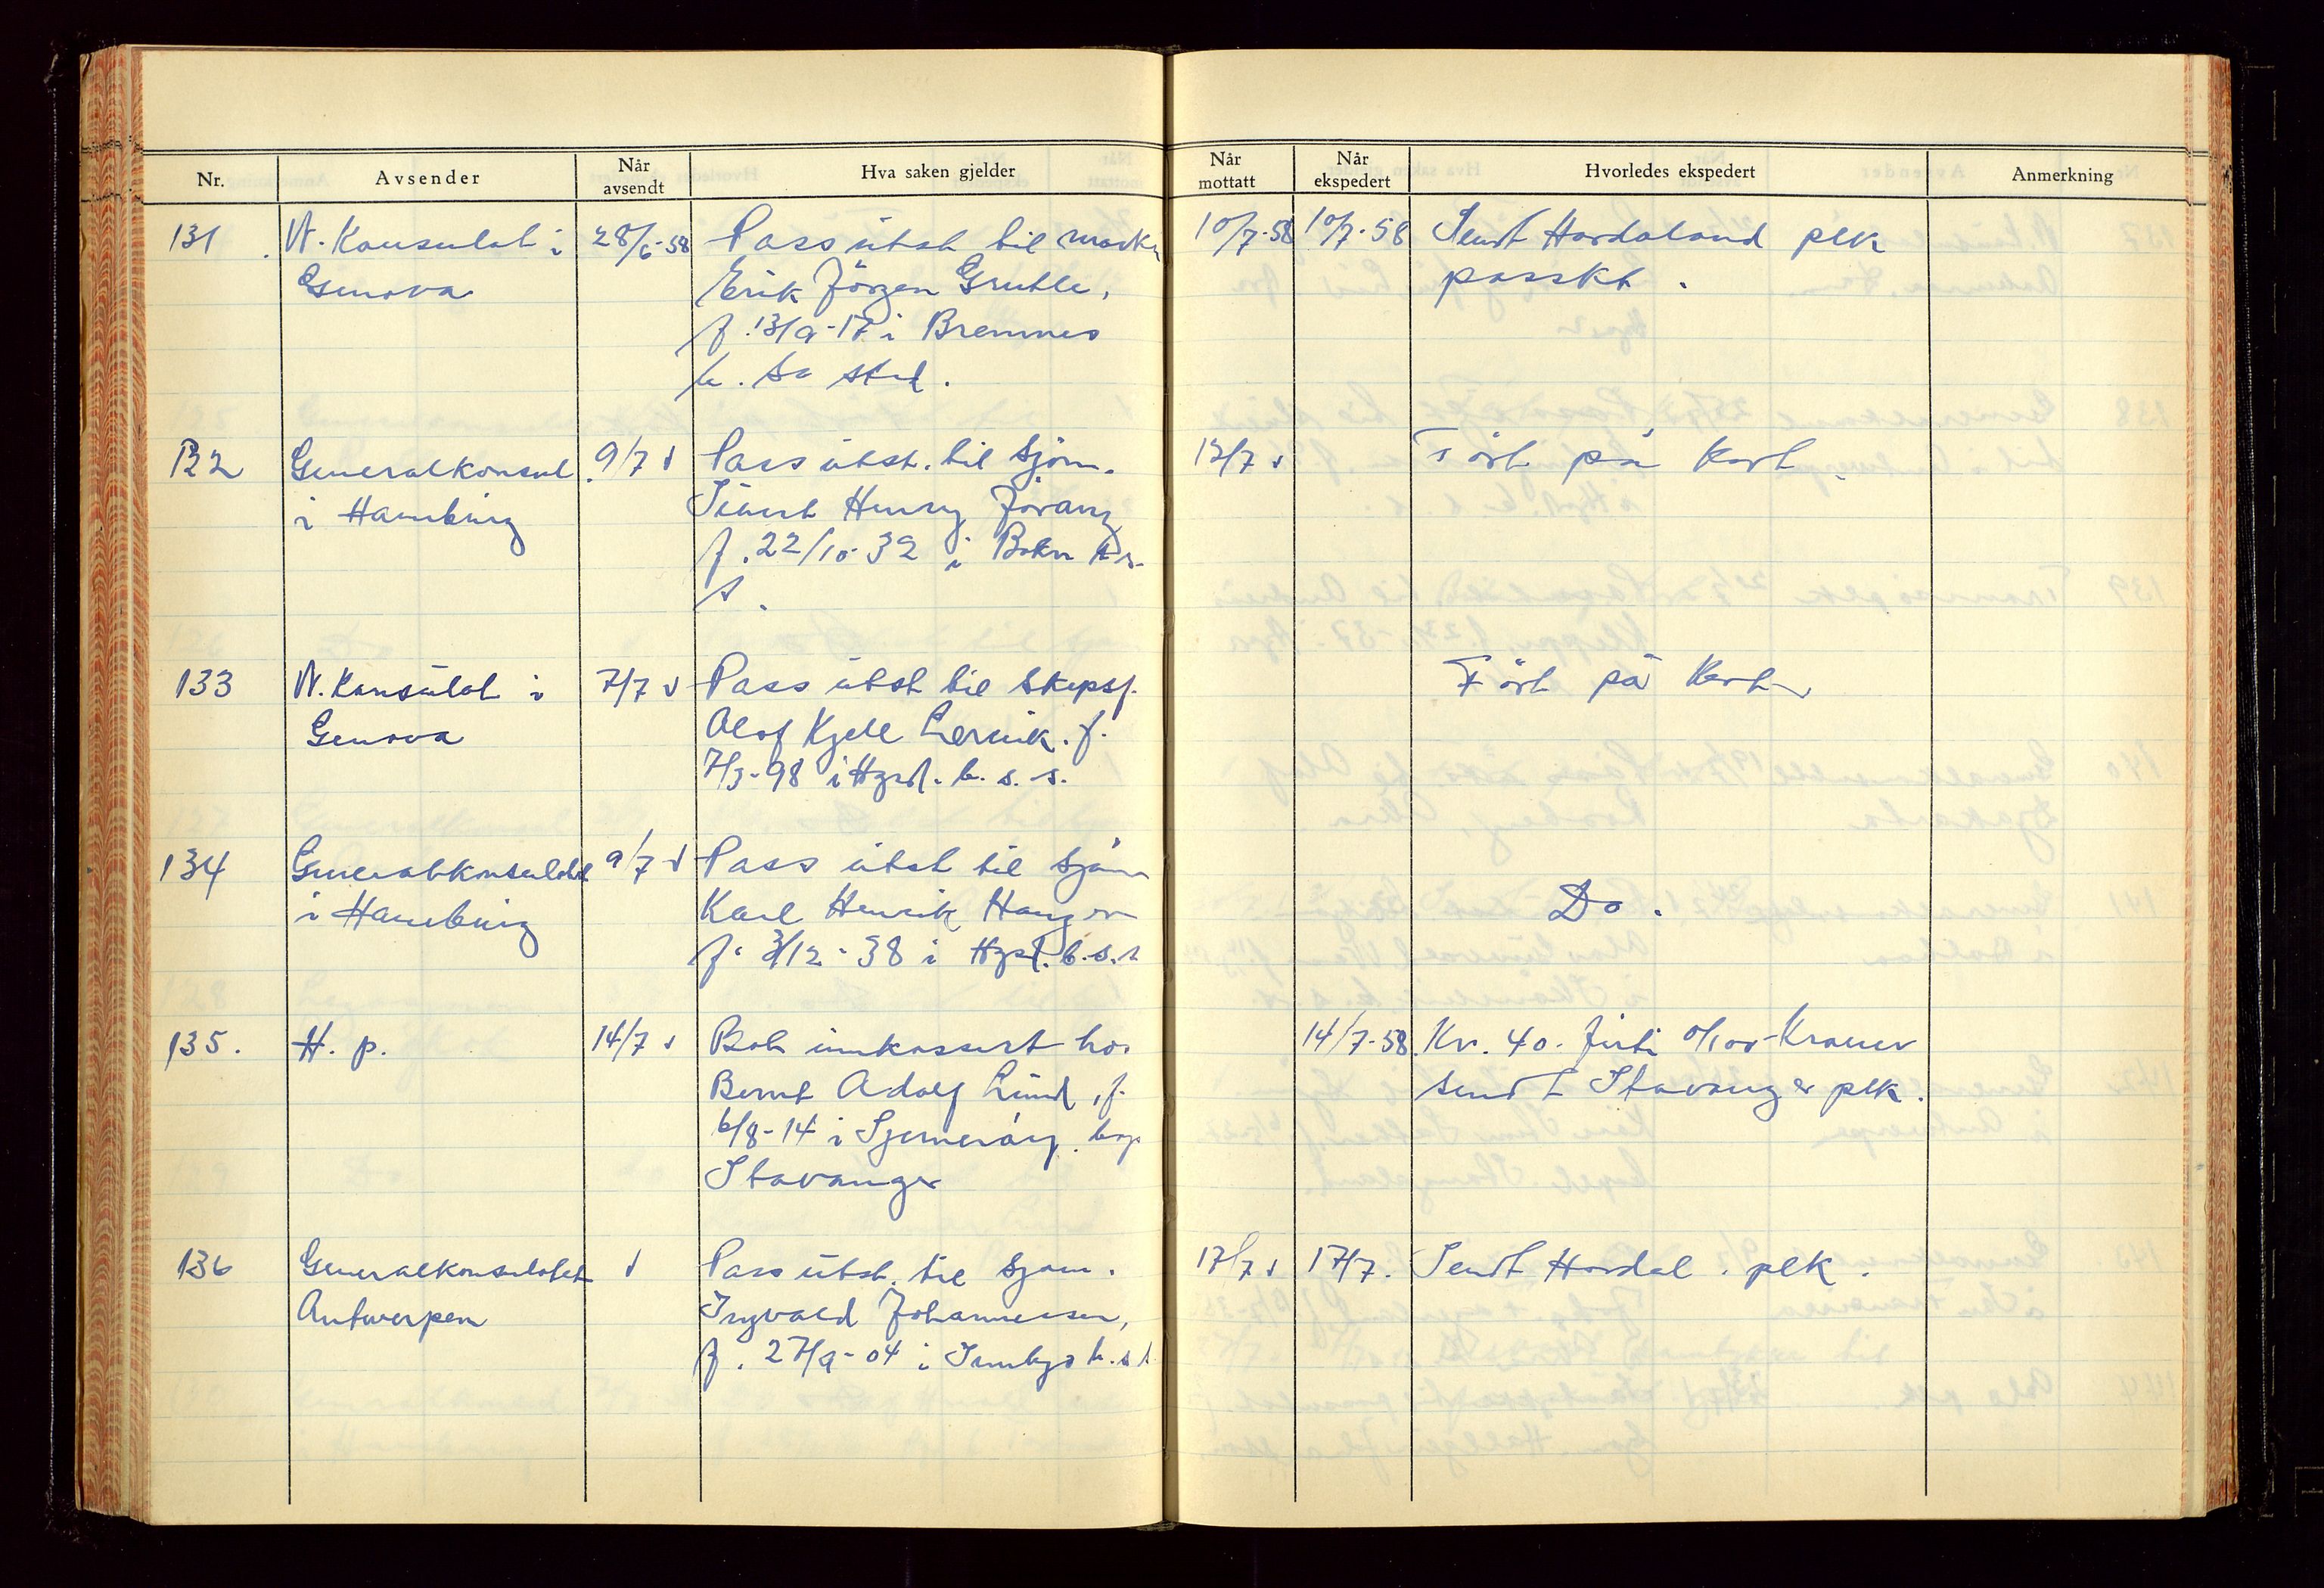 Nr.
Avsender
Når avsendt
Hva saken gjelder
Når mottatt
Når ekspedert
Hvorledes ekspedert
Anmerkning
131 N. Konsulat i 28/6-58 Pass utst til 10/7-58 10/7-58 Sendt Hordaland plk
Genova Erik Jörgen Grutle, passkt.
f. 13/9-17 i Bremnes
b. sa sted.
132 Generalkonsul 9/7 Pass utst. til Sjöm. 12/7 Fört på Kort
i Hamburg Henry
f. 22/10-32 i Bokn
133 N. Konsulat i 7/7 Pass utst til Skipsf. Fört på Kort
Genova Olof Kjell f.
7/3-98 i Hgsd. b. s. s.
134 Generalkonsulatet 9/7 Pass utst til Sjöm
i Hamburg Karl Henrik Do.
f. 3/12-38 i Hgsd. b. s. s
135. H. p. 14/7 Bot innkassert hos 14/7-58. Kr. 40. Firti 0/100 Kroner
Bernt Adolf Lund, f. sendt Stavanger plk.
6/8-14 i Sjernaröy. bop
Stavanger
136 Generalkonsulatet Pass utst. til Sjöm. 17/7 17/7. Sendt Hordal. plk.
Antwerpen Ingvald Johannesen,
f. 27/9-04 i b. s s